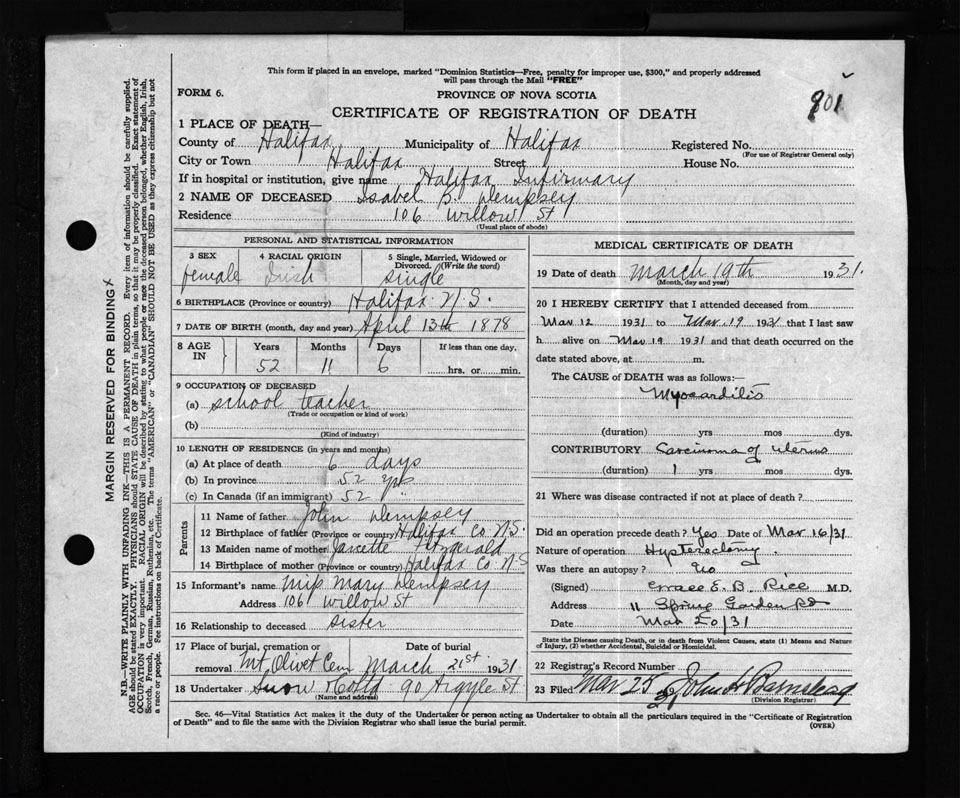 This form if placed in an envelope, marked "Dominion Statistics—Free, penalty for improper use, $300," and properly addressed
will pass through the Mail "FREE"
FORM 6.
PROVINCE OF NOVA SCOTIA
901
CERTIFICATE OF REGISTRATION OF DEATH
1 PLACE OF DEATH—
County of Halifax Municipality of Halifax Registered No.
(For use of Registrar General only)
City or Town Halifax Street House No.
If in hospital or institution, give name Halifax Infirmary
2 NAME OF DECEASED Isabel B. Dempsey
Residence 106 Willow St
(Usual place of abode)
PERSONAL AND STATISTICAL INFORMATION
3 SEX 4 RACIAL ORIGIN 5 Single, Married, Widowed or
Divorced. (Write the word)
female Irish single
6 BIRTHPLACE (Province or country) Halifax N.S.
7 DATE OF BIRTH (month, day and year) April 13th 1878
8 AGE IN Years Months Days If less than one day.
52 11 6 hrs. or min.
9 OCCUPATION OF DECEASED
(a) school teacher
(Trade or occupation or kind of work)
(b)
(Kind of industry)
10 LENGTH OF RESIDENCE (in years and months)
(a) At place of death 6 days
(b) In province 52 yrs
(c) In Canada (if an immigrant) 52 "
Parents
11 Name of father John Dempsey
12 Birthplace of father (Province or country) Halifax Co N.S.
13 Maiden name of mother Janette Fitzgerald
14 Birthplace of mother (Province or country) Halifax Co N.S
15 Informant's name Miss Mary Dempsey
Address 106 Willow St
16 Relationship to deceased sister
17 Place of burial, cremation or Date of burial
removal Mt Olivet Cem March 21st 1931
18 Undertaker Snow & Co Ltd 90 Argyle St
(Name and address)
MEDICAL CERTIFICATE OF DEATH
19 Date of death March 19th 1931.
(Month, day and year)
20 I HEREBY CERTIFY that I attended deceased from
Mar 12 1931 to Mar. 19 1931 that I last saw
h alive on Mar 19 1931 and that death occurred on the
date stated above, at m.
The CAUSE OF DEATH was as follows:—
Myocarditis
(duration) yrs mos dys.
CONTRIBUTORY Carcinoma of Uterus
(duration) 1 yrs mos dys.
21 Where was disease contracted if not at place of death?
Did an operation precede death? Yes Date of Mar 16/31
Nature of operation Hysterectomy.
Was there an autopsy? no
(Signed) Grace E. B. Rice M.D.
Address 11 Spring Garden Rd
Date Mar 20/31
State the Disease causing Death, or in death from Violent Causes, state (1) Means and Nature
of Injury, (2) whether Accidental, Suicidal or Homicidal.
22 Registrar's Record Number
23 Filed Mar 25 31 John H Barnstead
(Division Registrar)
Sec. 46—Vital Statistics Act makes it the duty of the Undertaker or person acting as Undertaker to obtain all the particulars required in the "Certificate of Registration
of Death" and to file the same with the Division Registrar who shall issue the burial permit.
(OVER)
MARGIN RESERVED FOR BINDING
N.B.—WRITE PLAINLY WITH UNFADING INK—THIS IS A PERMANENT RECORD. Every item of information should be carefully supplied.
AGE should be stated EXACTLY. PHYSICIANS should STATE CAUSE OF DEATH in plain terms, so that it may be properly classified. Exact statement of
OCCUPATION is very important. RACIAL ORIGIN will be described by stating to what people or race the deceased person belonged, whether English, Irish,
Scotch, French, German, Russian, Ruthenian, etc. The terms "AMERICAN" or "CANADIAN" SHOULD NOT BE USED as they express citizenship but not
a race or people. See instructions on back of Certificate.